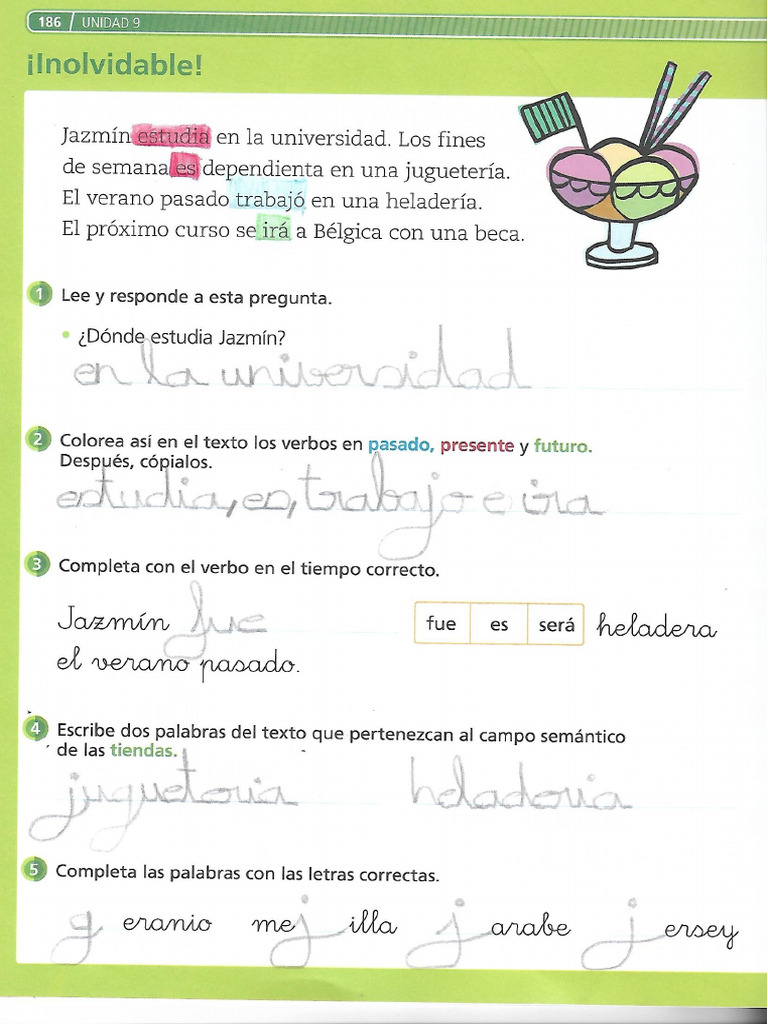 186 / UNIDAD 9
¡Inolvidable!
Jazmín estudia en la universidad. Los fines
de semana es dependienta en una juguetería.
El verano pasado trabajó en una heladería.
El próximo curso se irá a Bélgica con una beca.
1 Lee y responde a esta pregunta.
• ¿Dónde estudia Jazmín?
en la universidad
2 Colorea así en el texto los verbos en pasado, presente y futuro.
Después, cópialos.
estudia, es, trabajo e ira
3 Completa con el verbo en el tiempo correcto.
Jazmín fue fue es será heladera
el verano pasado.
4 Escribe dos palabras del texto que pertenezcan al campo semántico
de las tiendas.
juguetoria heladoria
5 Completa las palabras con las letras correctas.
g eranio mejilla jarabe jersey